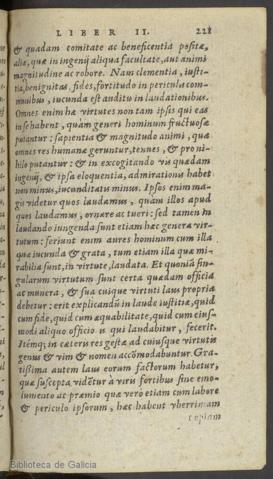 LIBER II. 221
& quadam comitate ac beneficentia positæ,
aliæ, quæ in ingenij aliqua facultate, aut animi
magnitudine ac robore. Nam clementia, iusti-
tia, benignitas, fides, fortitudo in periculis com
munibus, iucunda est auditu in laudationibus.
Omnes enim hæ virtutes non tam ipsis qui eas
in se habent, quàm generi hominum fructuosæ
putantur: sapientia & magnitudo animi, qua
omnes res humanæ geruntur, tennes, & pro ni-
hilo putantur: & in excogitando vis quædam
ingenij, & ipsa eloquentia, admirationis habet
non minus, iucunditatis minus. Ipsos enim ma-
gis videtur quos laudamus, quàm illos apud
quos laudamus, ornare ac tueri: sed tamen in
laudando iungenda sunt etiam hæc genera vir-
tutum: feriunt enim aures hominum cum illa
quæ iucunda & grata, tum etiam illa quæ mi-
rabilia sunt, in virtute, laudata. Et quoniã sin-
gularum virtutum sunt certa quædam officia
ac munera, & sua cuique virtuti laus propria
debetur: erit explicandũ in laude iustitiæ, quid
cum fide, quid cum æquabilitate, quid cum eius-
modi aliquo officio is qui laudabitur, fecerit.
Itémq; in cæteris res gestæ ad cuiusque virtutis
genus & vim & nomen accõmodabuntur. Gra-
tissima autem laus eorum factorum habetur,
quæ suscepta vidẽtur à viris fortibus sine emo-
lumento ac præmio quæ verò etiam cum labore
& periculo ipsorum, hæc habent vberrimam
copiam
Biblioteca de Galicia